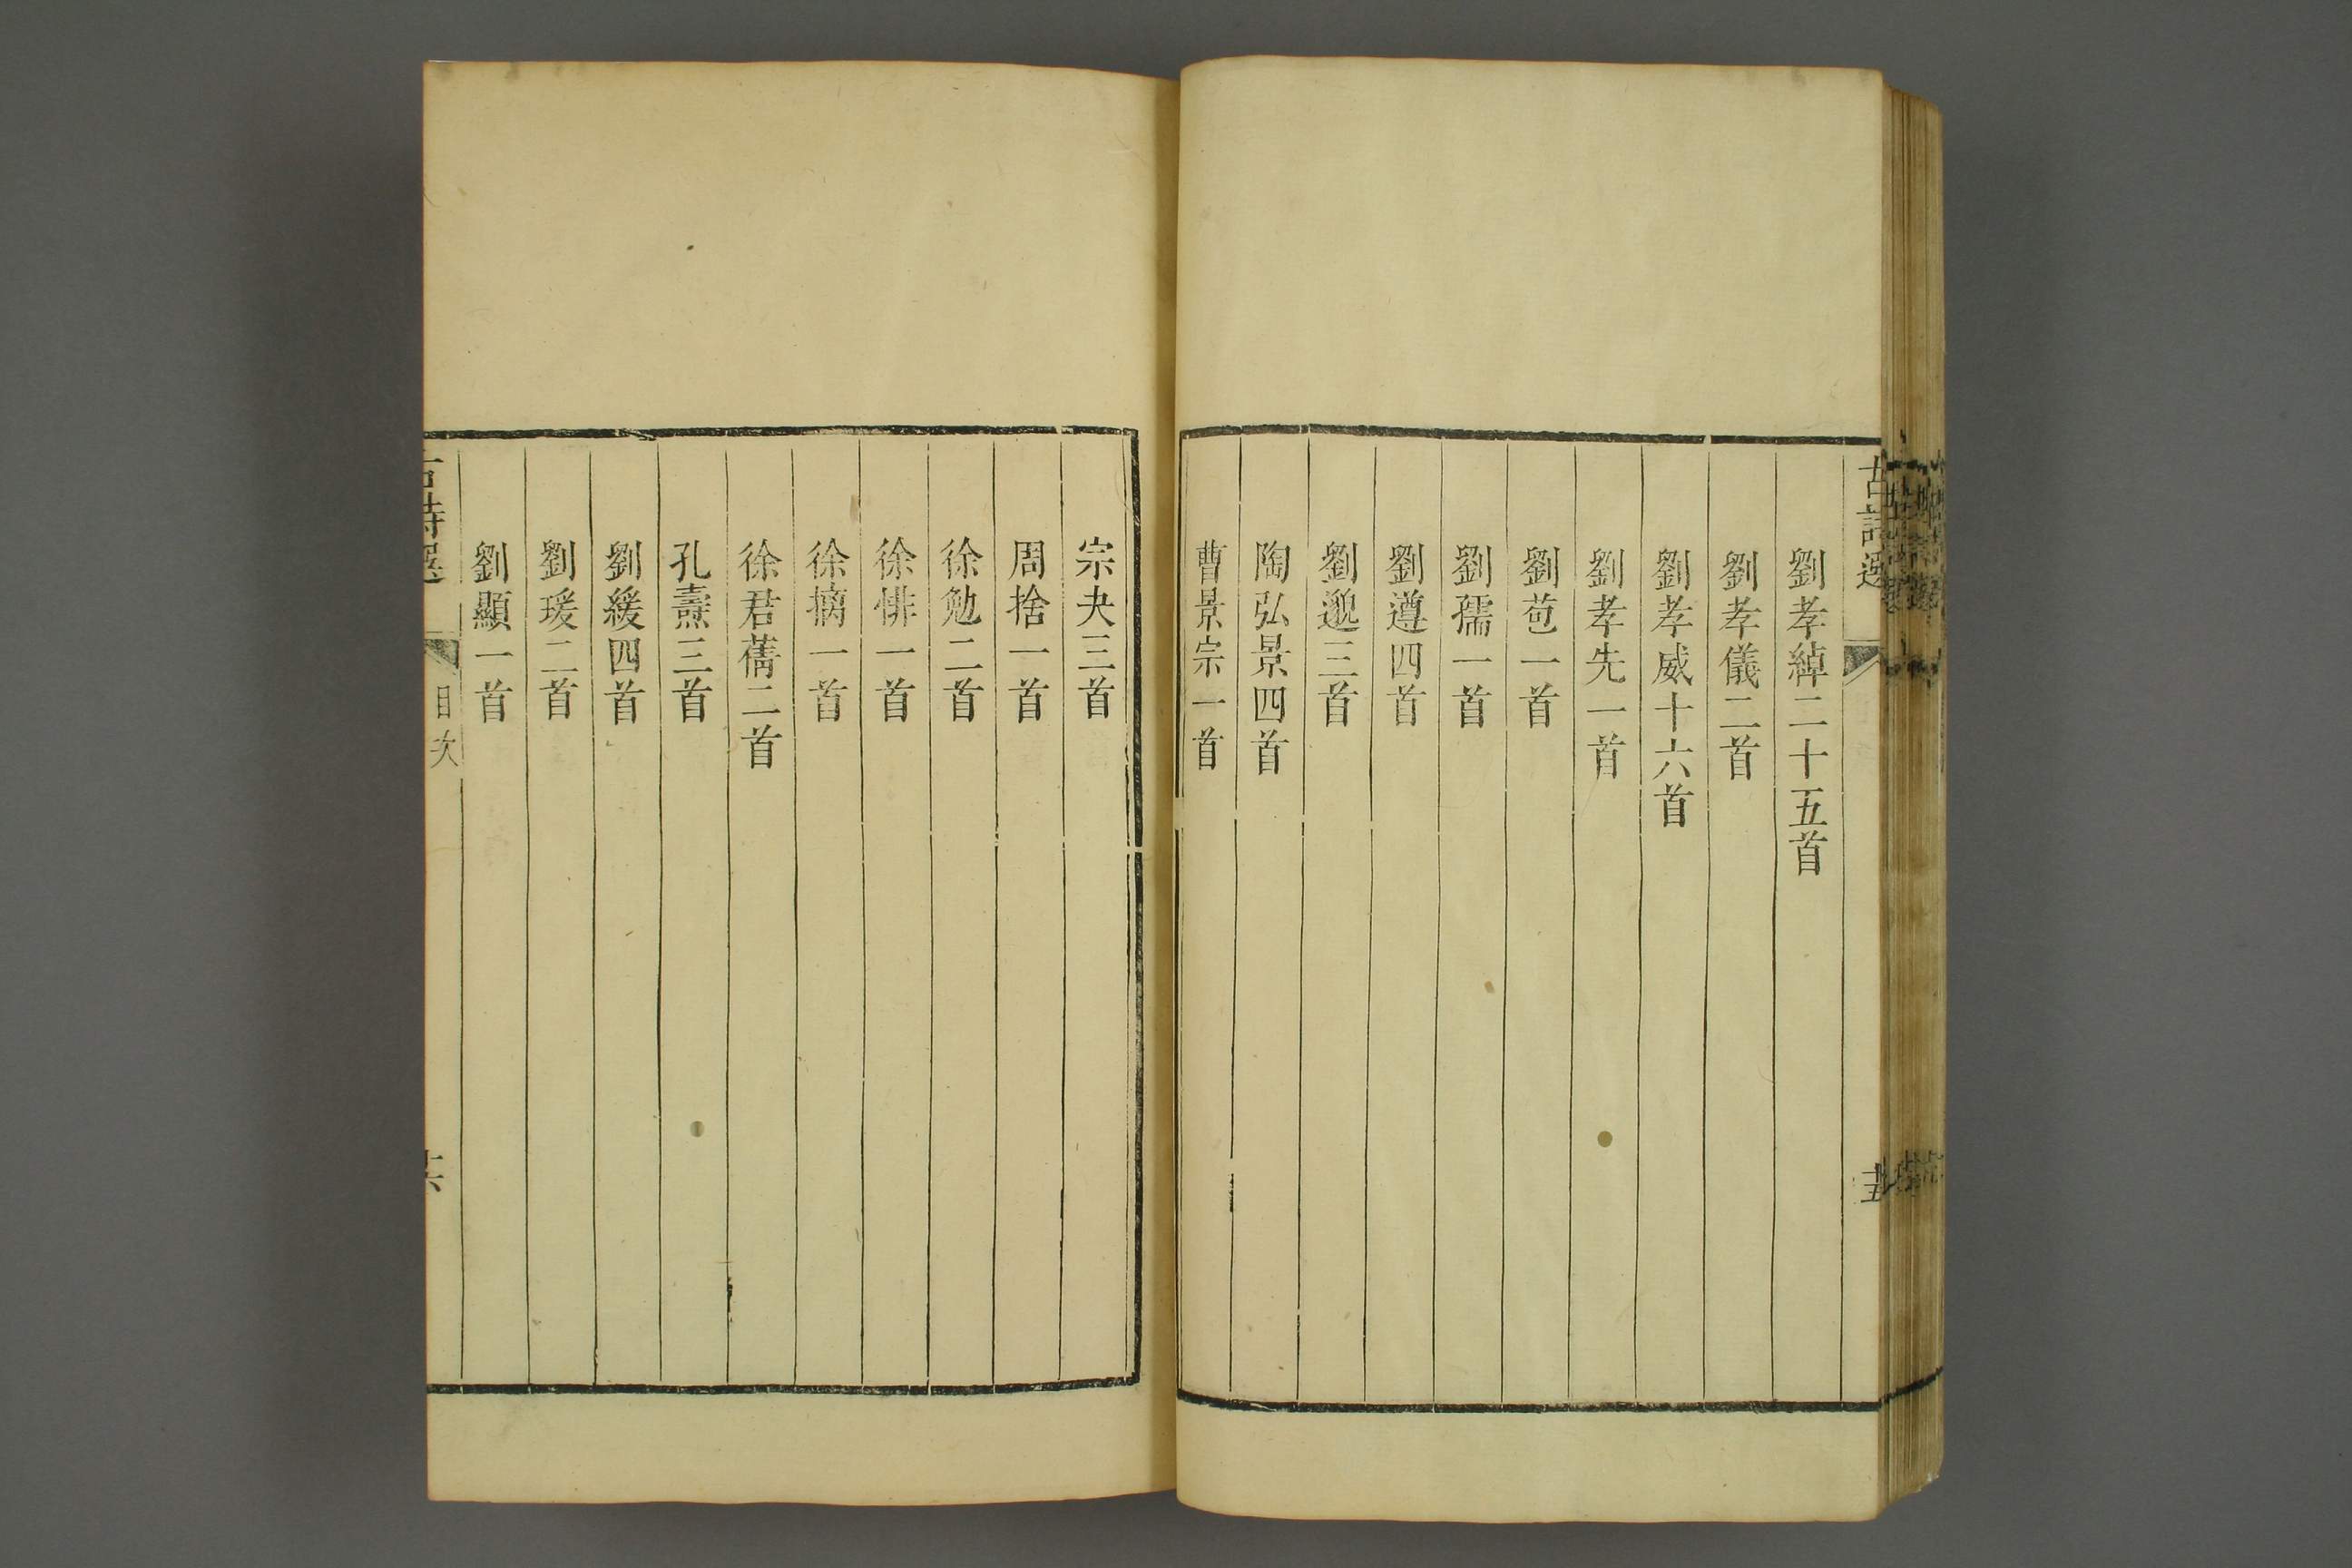 古詩選
十五
劉孝綽二十五首
劉孝儀二首
劉孝威十六首
劉孝先一首
劉苞一首
劉孺一首
劉遵四首
劉邈三首
陶弘景四首
曹景宗一首
宗夬三首
周捨一首
徐勉二首
徐悱一首
徐摛一首
徐君蒨二首
孔燾三首
劉緩四首
劉瑗二首
劉顯一首
古詩選
目次
十六